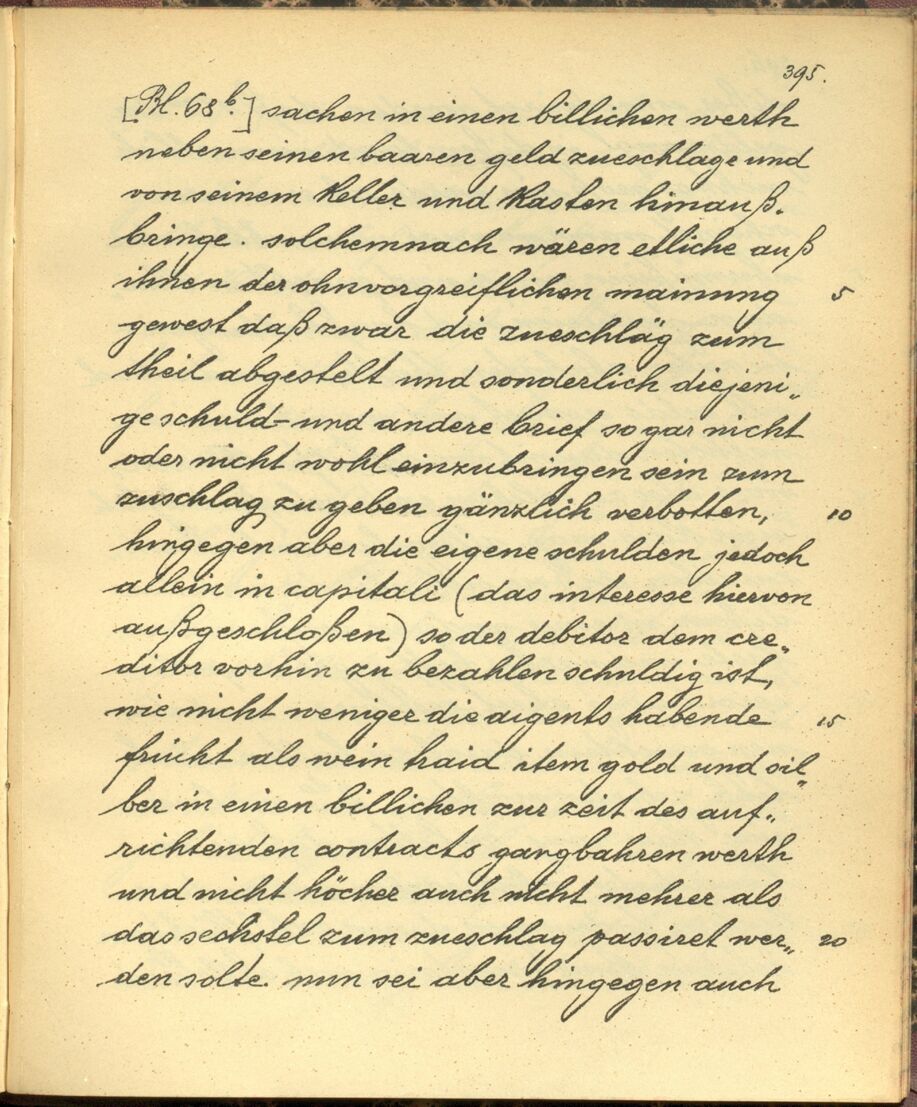 395.
[Bl. 68b.] sachen in einen billichen werth
neben seinen baaren geld zueschlage und
von seinem Keller und Kasten hinauß-
bringe. solchemnach wären etliche auß
ihnen der ohnvorgreiflichen mainung 5
gewest daß zwar die zueschläg zum
theil abgestelt und sonderlich diejeni„
ge schuld- und andere brief so gar nicht
oder nicht wohl einzubringen sein zum
zuschlag zu geben gänzlich verbotten, 10
hingegen aber die eigene schulden jedoch
allein in capitali (das interesse hiervon
außgeschloßen) so der debitor dem cre„
ditor vorhin zu bezahlen schuldig ist,
wie nicht weniger die aigents habende 15
frücht als wein traid item gold und sil„
ber in einen billichen zur zeit des auf„
richtenden contracts gangbahren werth
und nicht höcher auch nicht mehrer als
das sechstel zum zueschlag passiret wer„ 20
den solte. nun sei aber hingegen auch